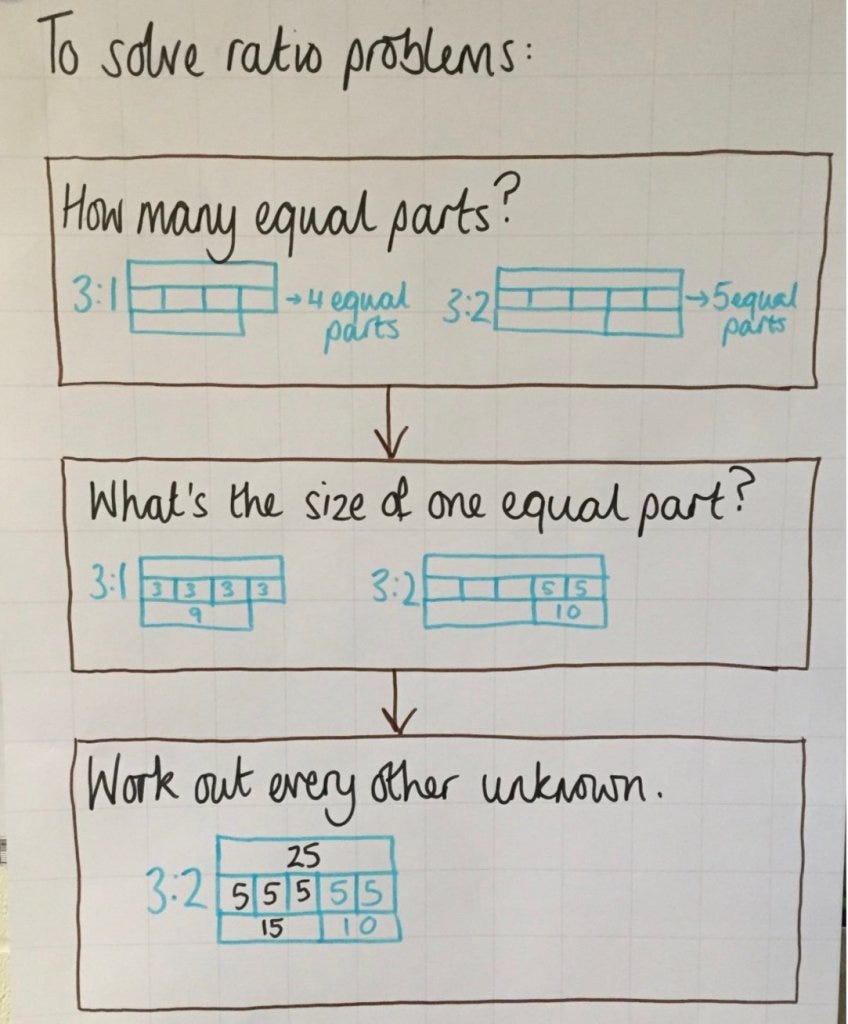 To solve ratio problems:
How many equal parts?
3:1 → 4 equal parts
3:2 → 5 equal parts
What's the size of one equal part?
3:1
3 3 3 3
9
3:2
5 5
10
Work out every other unknown.
25
3:2 5 5 5 5 5
15 10